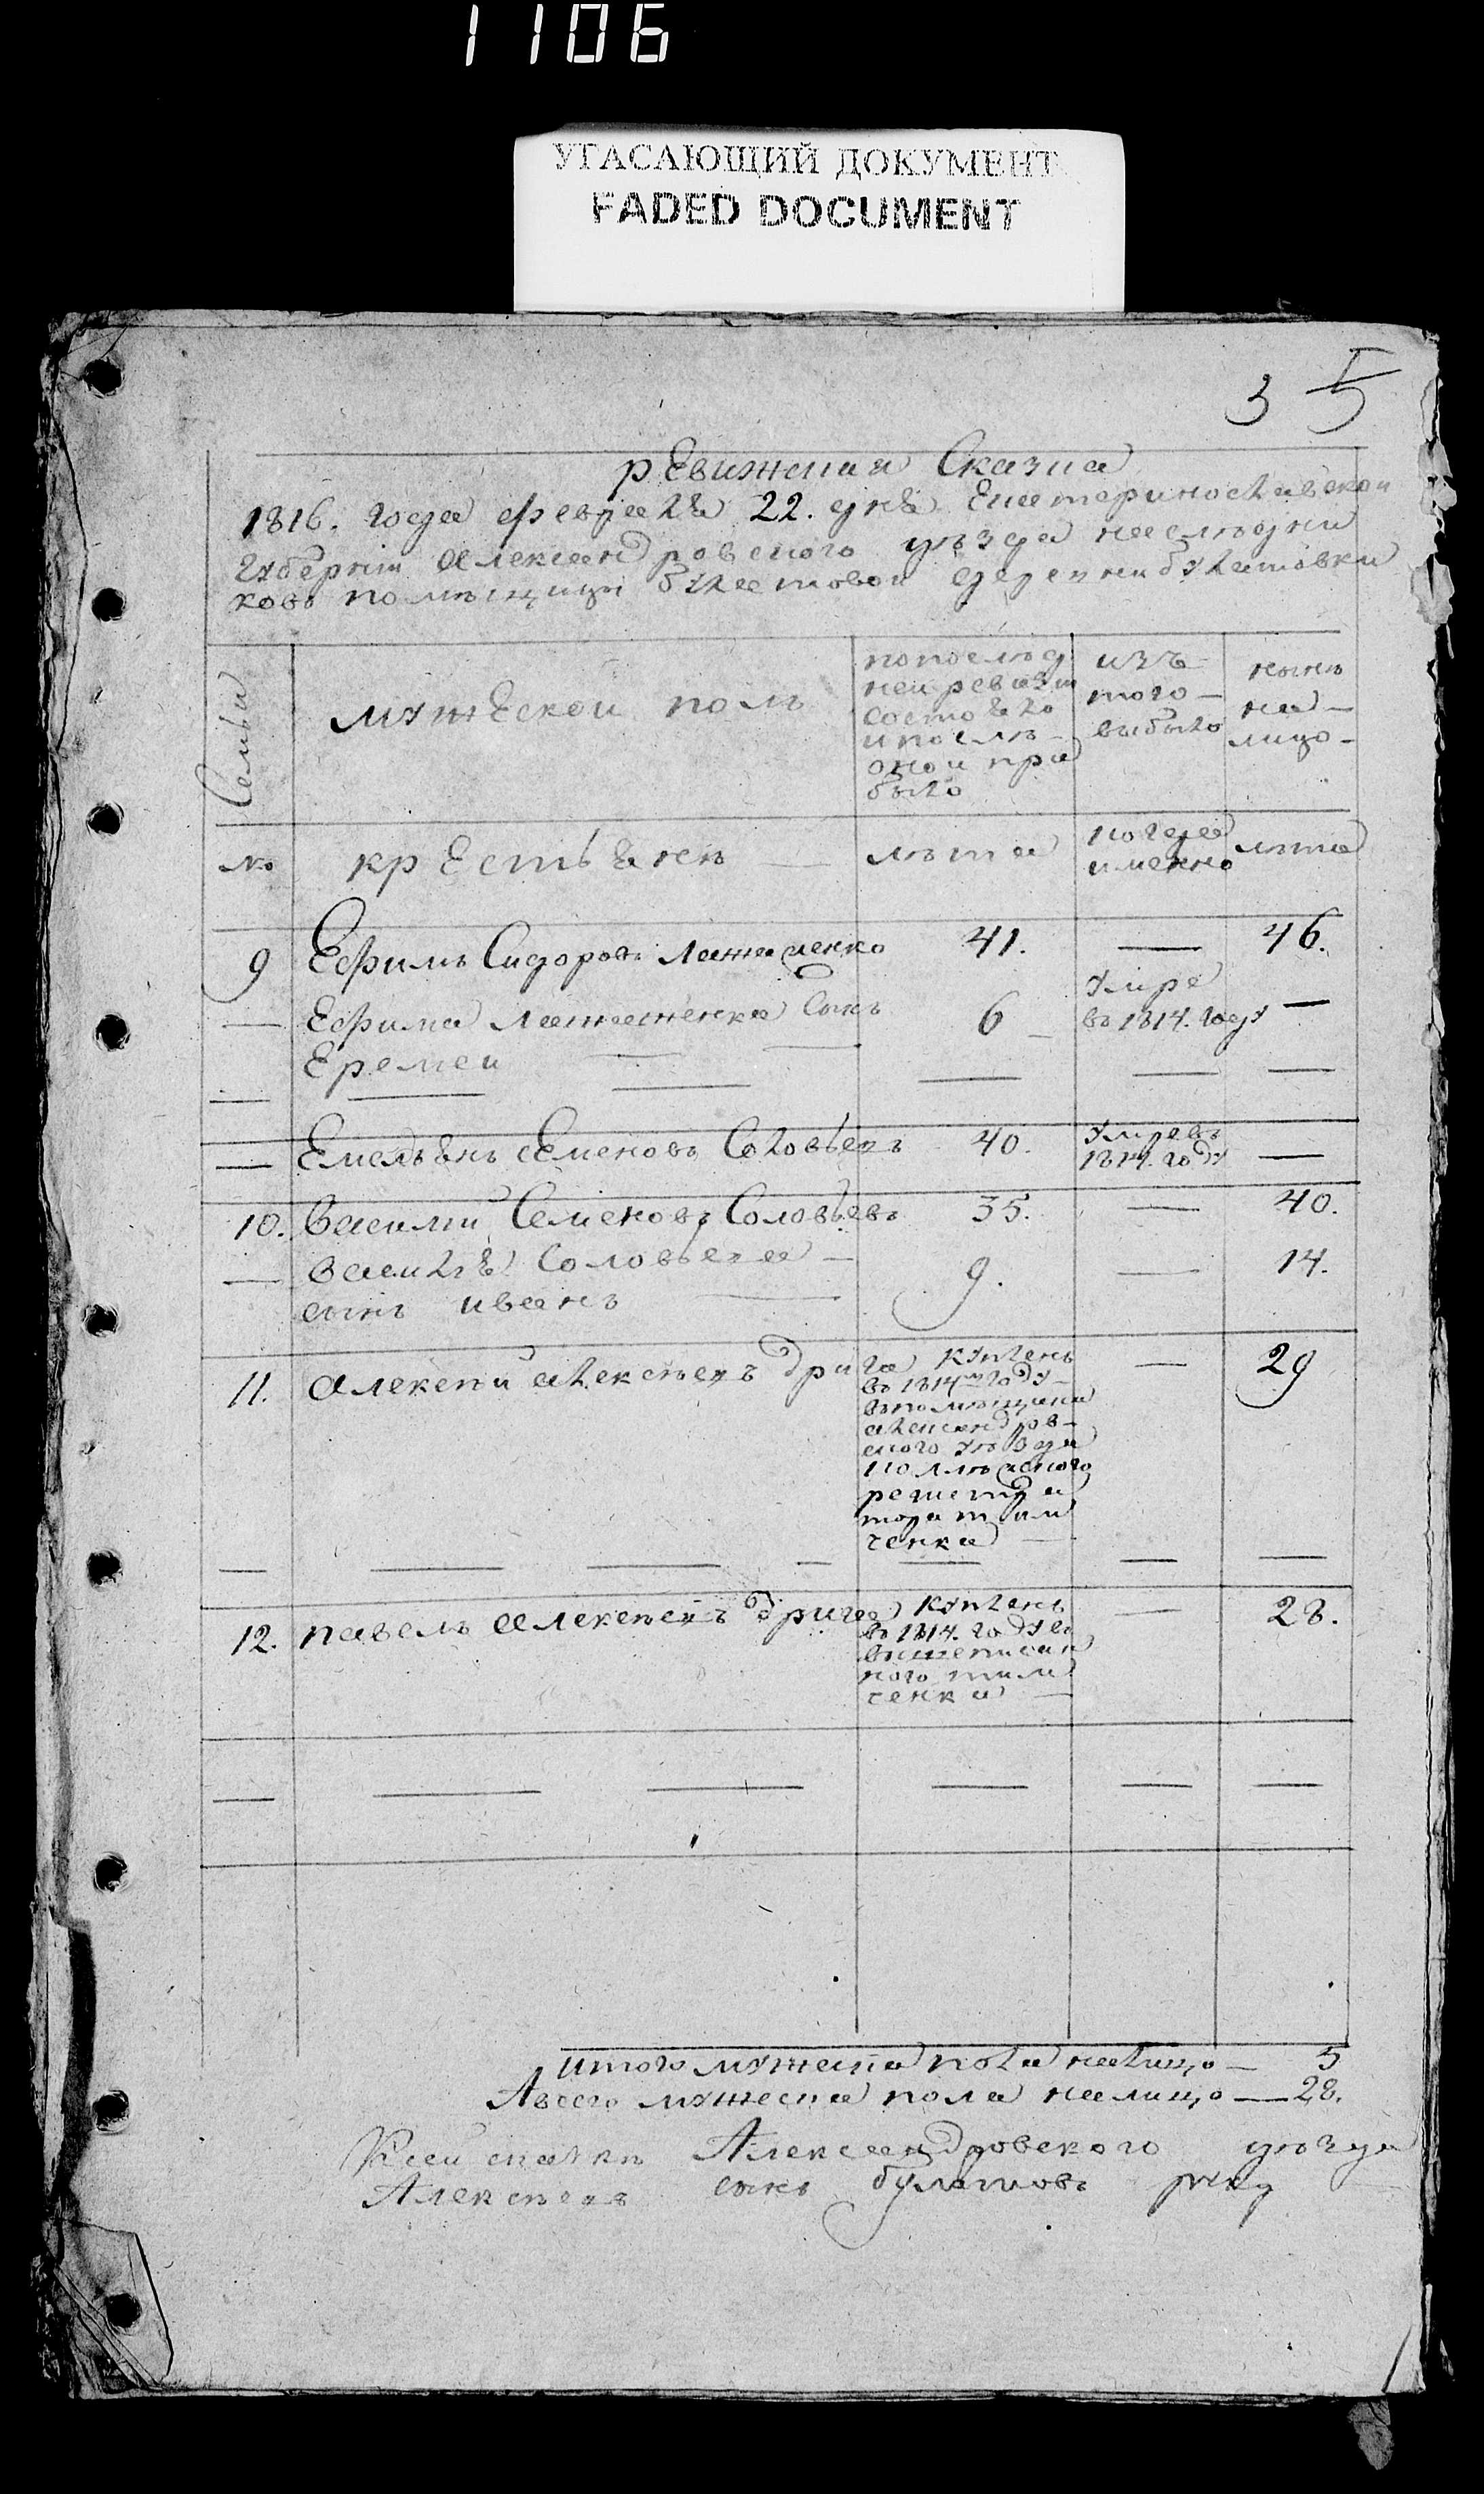 1106
УГАСАЮЩИЙ ДОКУМЕНТ
FADED DOCUMENT
35
ревижская Сказка
1816. года февраля 22. дня Екатеринославской
губерніи александровского уѣзда наслѣдни
ковъ помѣщици булатовой деревни булатовки
Семьи
мужеской полъ
попослѣд
ней ревизіи
состояло
и послѣ
оной при
было
изъ
того
выбыло
нынѣ
на
лицо
№
крестьянѣ
лѣта
когда
именно
лѣта
9 Ефимъ Сидоровъ 41. — 46.
Ефима сынъ 6 умре
въ 1814. году —
Еремей
Емельянъ семеновъ Соловьевъ 40. умре въ
1814. году —
10. Василій Семеновъ Соловьевъ 35. — 40.
василя Соловьева 9. — 14.
сынъ иванъ
11. алексей алексѣевъ дрига купленъ — 29
въ 1814м году
въ помѣщика
александров
ского уѣзда
ченка
12. павелъ алексѣевъ дрига купленъ — 28.
въ 1814. году въ
вышеписан
ного тим
ченка
итого мужеска пола налицо — 5
Авсего мужеска пола налицо — 28.
Ксей скаскѣ Александровского уѣзда
Алексѣевъ сынъ булатовъ руку